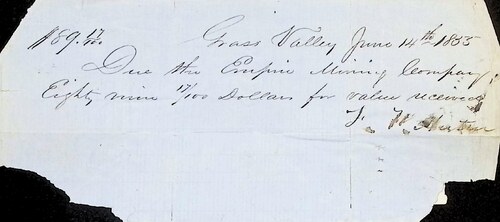 $89.17/100 Grass Valley June 14th 1855
Due the Empire Mining Company
Eighty nine 17/100 Dollars for value received